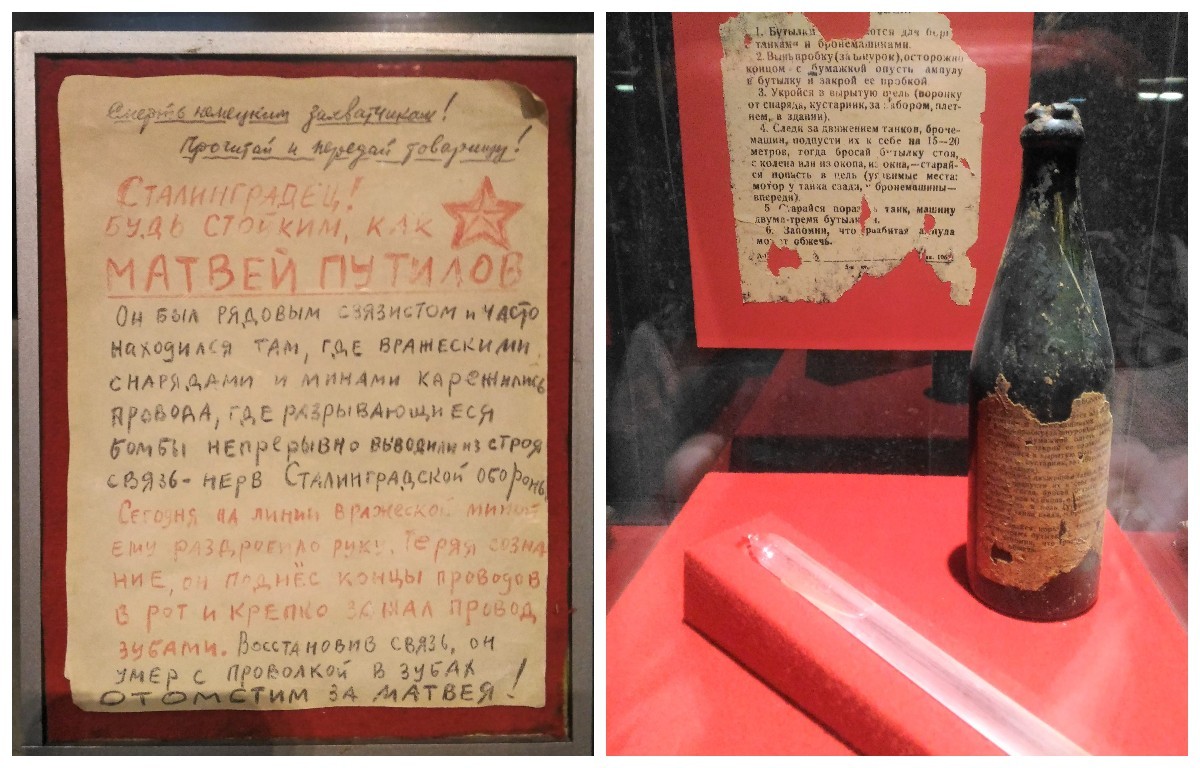 Смерть немецким захватчикам!
Прочитай и передай товарищу!
СТАЛИНГРАДЕЦ!
БУДЬ СТОЙКИМ, КАК
МАТВЕЙ ПУТИЛОВ
Он был рядовым связистом и часто
находился там, где вражескими
снарядами и минами карежились
провода, где разрывающиеся
бомбы непрерывно выводили из строя
связь - нерв Сталинградской обороны
Сегодня на линии вражеской миной
ему раздробило руку. Теряя созна
ние, он поднёс концы проводов
в рот и крепко зажал провод
зубами. Восстановив связь, он
умер с проволкой в зубах
ОТОМСТИМ ЗА МАТВЕЯ!
1. Бутылки для
танками и бронемашинами.
2. Вынь пробку (за шнурок), осторожно
концом с бумажкой опусти ампулу
в бутылку и закрой ее пробкой.
3. Укройся в вырытую щель (воронку
от снаряда, кустарник, за забором, плет-
нем, в здании).
4. Следя за движением танков, броне-
машин, подпусти их к себе на 15—20
метров, тогда бросай бутылку стоя,
с колена или из окопа, из окна,—старай-
ся попасть в цель (уязвимые места:
мотор у танка сзади, у бронемашины—
впереди).
5. Старайся поразить танк, машину
двумя-тремя бутылками.
6. Запомни, что разбитая ампула
может обжечь.